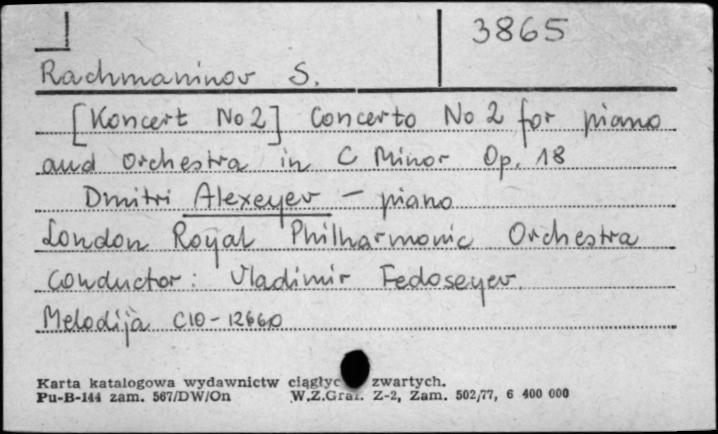 3865
Rachmaninov S.
[Koncert No 2] Concerto No 2 for piano
and Orchestra in C Minor Op. 18
Dmitri Alexeyev - piano
London Royal Philharmonic Orchestra
conductor: Vladimir Fedoseyev.
Melodija C10-12660
Karta katalogowa wydawnictw zwartych.
Pu-B-144 zam. 567/DW/On W.Z.Graf. Z-2, Zam. 502/77, 6 400 000